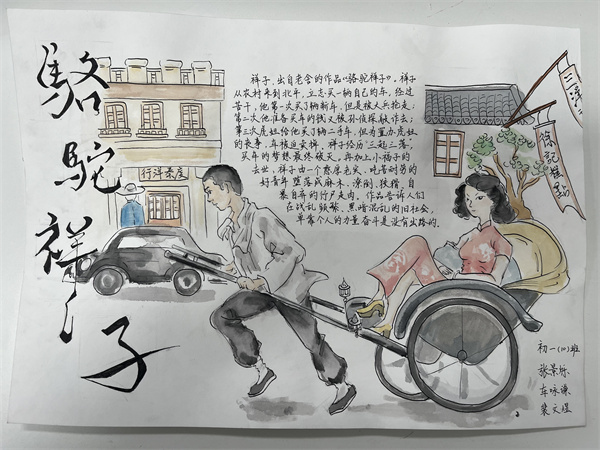 駱駝祥子
祥子,出自老舍的作品《骆驼祥子》。祥子
从农村来到北平,立志买一辆自己的车,经过
苦干,他第一次买了辆新车,但是被大兵抢走;
第二次,他准备买车的钱又被孙侦探敲诈去;
第三次虎妞给他买了辆二手车,但为置办虎妞
的丧事,车被迫卖掉,祥子经历"三起三落",
买车的梦想最终破灭,再加上小福子的
去世,祥子由一个憨厚老实、吃苦耐劳的
好青年堕落成麻木、潦倒、狡猾、自
暴自弃的行尸走肉。作品告诉人们
在战乱频繁、黑暗混乱的旧社会,
单靠个人的力量奋斗是没有出路的。
行洋泰度
徐記糕點
初一(10)班